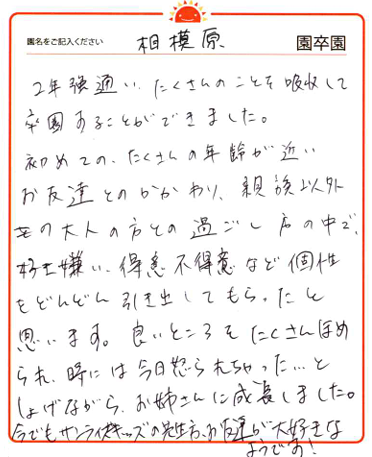 園名をご記入ください 相模原 園卒園
2年強通い、たくさんのことを吸収して
卒園することができました。
初めての、たくさんの年齢が近い
お友達とのかかわり、親族以外
の大人の方との過ごし方の中で、
好き嫌い、得意不得意など個性
をどんどん引き出してもらったと
思います。良いところをたくさんほめ
られ、時には今日怒られちゃった…と
しょげながら、お姉さんに成長しました。
今でもサンライズキッズの先生方、お友達が大好きな
ようです!